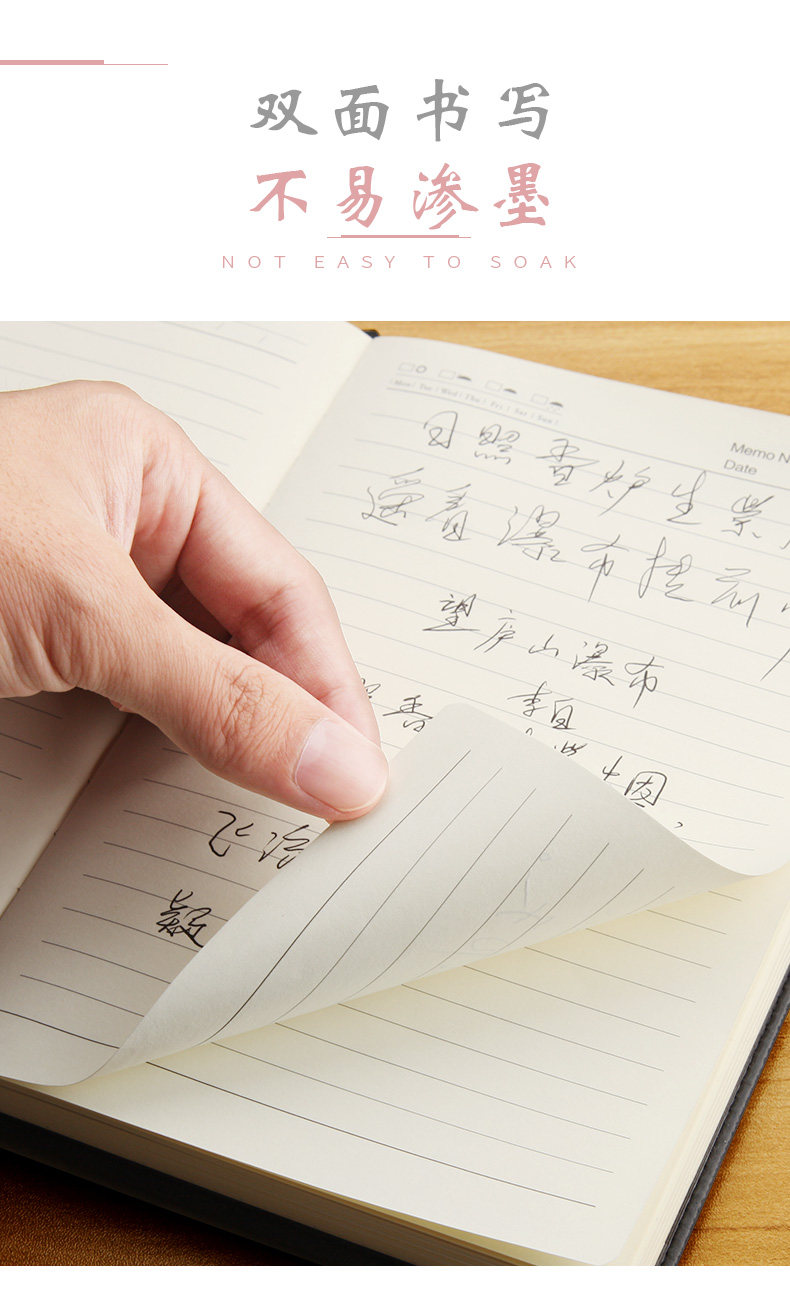 双面书写
不易渗墨
NOT EASY TO SOAK
Mon Tue Wed Thu Fri Sat Sun
Memo N
Date
日照香炉生紫
遥看瀑布挂前
望庐山瀑布
李白
照香
紫烟,
飞流
疑